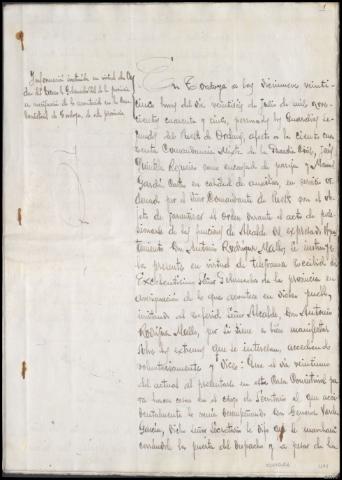 Información instruida en virtud de Or-
den del Excmo Sr. Gobernador Civil de la provincia
en averiguación de lo acontecido en la Casa
Consistorial de Tordoya, de esta provincia
1
En Tordoya a las diecinueve veinti-
cinco horas del día veintiseis de Julio de mil nove-
cientos cuarenta y cinco, personados los Guardias se-
gundos del Puesto de Ordenes, afecto a la ciento cua-
renta Comandancia Mixta de la Guardia Civil, José
Quintela como encargado de pareja y Manuel
García en calidad de auxiliar, en servicio or-
denado por el Señor Comandante de Puesto con el ob-
jeto de garantizar el orden durante el acto de pose-
sionarse de las funciones de Alcalde del expresado Ayun-
tamiento Don Antonio Rodríguez se instruye
la presente en virtud de telefonema recibido del
Excelentísimo Señor Gobernador de la provincia en
averiguación de lo que acontece en dicho pueblo,
invitando al referido Señor Alcalde, Don Antonio
Rodríguez por si tiene a bien manifestar
sobre los extremos que se interesan, accediendo
voluntariamente y Dice: Que el día veintiuno
del actual al presentarse en esta Casa Consistorial pa-
ra hacerse cargo de Secretario el que acci-
dentalmente lo venía desempeñando Don
García, dicho señor Secretario le dijo que se marchara
cerrando la puerta del despacho y a pesar de ha-